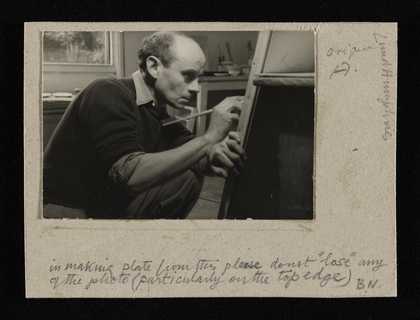 origin
A.
Lund Humphries
in making plate from this please do not "lose" any
of the photo (particularly on the top edge)
B.N.